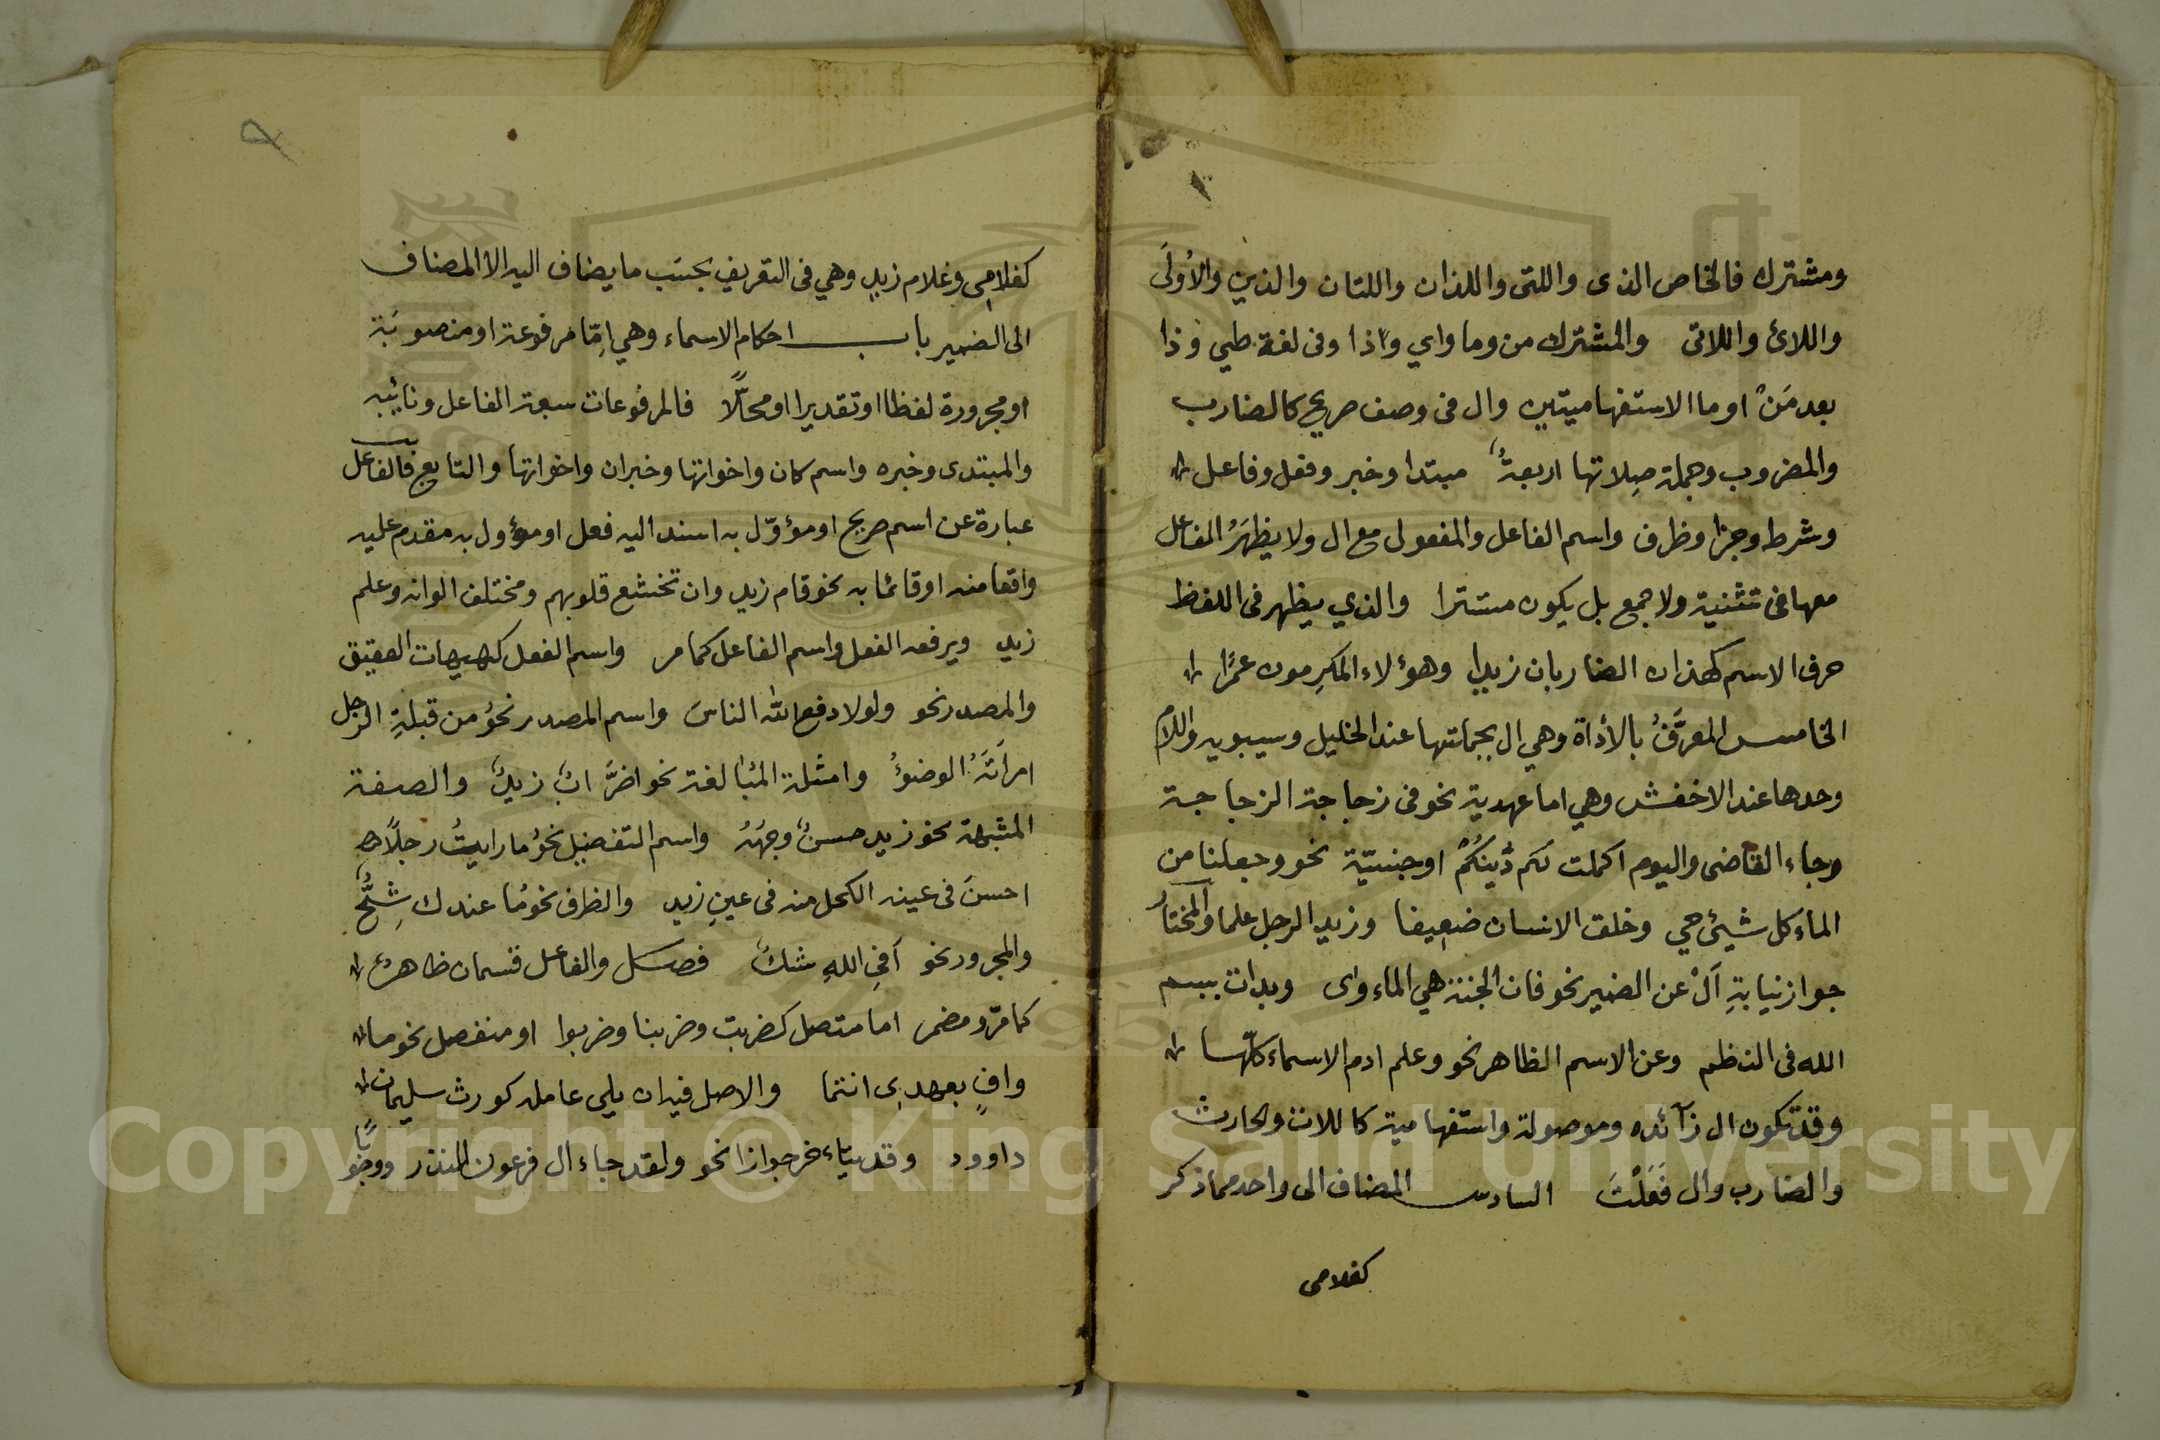 ومشترك فالخاص الذى واللتى واللذان واللتان والذين والأولَى
واللائ واللاتى والمشترك من وما واي وإذا وفى لغة طي وذا
بعد مَنْ او ما الاستفهاميتين وال فى وصف صريح كالضارب
والمضروب وجملة صِلاتها اربعةٌ مبتدا وخبر وفعل وفاعل
وشرط وجزا وظرف واسم الفاعل والمفعول مع ال ولا يظهَرُ الفاعل
معها فى تثنية ولا جمع بل يكون مستترا والذي يظهر فى اللفظ
حرف الاسم كهذان الضاربان زيدا وهؤلاء المكرِمون عمرًا
الخامس المعرَّفُ بالأداة وهي ال بجملتها عند الخليل وسيبويه واللام
وحدها عند الاخفش وهي اما عهدية نحو فى زجاجة الزجاجة
وجاء القاضى واليوم اكملت لكم دِينَكُمْ او جنسيّة نحو وجعلنا من
الماء كل شيئ حي وخلق الانسان ضعيفا وزيد الرجل علما والمختار
جواز نيابةِ اَلْ عن الضمير نحو فان الجنة هي الماءوى وبدات ببسم
الله فى النظم وعن الاسم الظاهر نحو وعلم ادم الاسماء كلّها
وقد تكون ال زآئده وموصولة واستفهامية كاللات والحارث
والضارب وال فَعَلْتَ السادس المضاف الى واحد مما ذكر
كغلامى
٩
كغلامِى وغلام زيدٍ وهي فى التعريف بحسَب ما يضاف اليه الا المضاف
الى الضمير باب احكام الاسماء وهي إمّا مرفوعة او منصوبَة
او مجرورة لفظا او تقديرا او محلًّا فالمرفوعات سبعة الفاعل ونائبه
والمبتدى وخبره واسم كان واخواتها وخبر ان واخواتها والتابع فالفاعل
عبارة عن اسم صريح او مؤوّل به اسند اليه فعل او مؤول به مقدم عليه
واقعا منه او قائما به نحو قام زيد وان تخشع قلوبهم ومختلف الوانه وعلم
زيد ويرفعه الفعل واسم الفاعل كما مر واسم الفعل كهيهات العقيق
والمصدر نحو ولولا دفع الله الناسَ واسم المصدر نحوُ من قبلةِ الرجل
امراَتَهُ الوضوُ وامثلة المُبالغة نحو اضرَّابٌ زيدٌ والصفة
المشبهة نحو زيد حسنٌ وجهُهُ واسم التفضيل نحوُ ما رايتُ رجلًا
احسنَ فى عينه الكحل منه فى عينِ زيد والظرف نحوُ ما عندك شِحٌّ
والمجرور نحو اَفِى اللهِ شكٌ فصل والفاعل قسمان ظاهر
كما مرّ ومضمر اما متصل كضربت وضربنا وضربوا او منفصل نحو ما
وافٍ بعهدىِ انتما والاصل فيه ان يلي عامله كورث سليمان
داوود وقد يتاءخر جوازا نحو ولقد جاء ال فرعون النذر ووجوبًا
Copyright © King Saud University